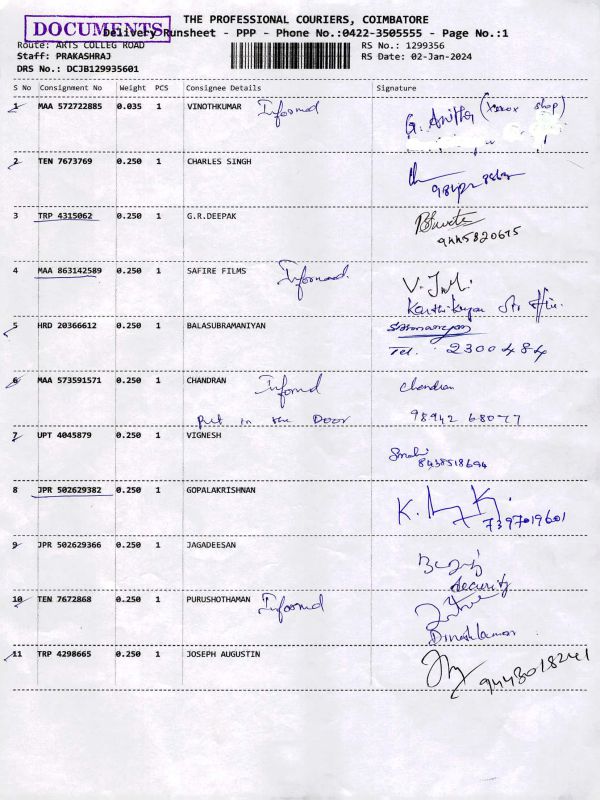 THE PROFESSIONAL COURIERS, COIMBATORE
DOCUMENTS
Delivery Runsheet - PPP - Phone No.:0422-3505555 - Page No.:1
Route: ARTS COLLEG ROAD
RS No.: 1299356
Staff: PRAKASHRAJ
RS Date: 02-Jan-2024
DRS No.: DCJB129935601
S No Consignment No Weight PCS Consignee Details Signature
1 MAA 572722885 0.035 1 VINOTHKUMAR Informed
G. Anitha (xerox shop)
2 TEN 7673769 0.250 1 CHARLES SINGH
3 TRP 4315062 0.250 1 G.R.DEEPAK
9445820675
4 MAA 863142589 0.250 1 SAFIRE FILMS Informed
5 HRD 20366612 0.250 1 BALASUBRAMANIYAN
Tel. : 2300484
6 MAA 573591571 0.250 1 CHANDRAN Informd Chandran
Put in the Door 98942 68077
7 UPT 4045879 0.250 1 VIGNESH
8438518694
8 JPR 502629382 0.250 1 GOPALAKRISHNAN
7397019601
9 JPR 502629366 0.250 1 JAGADEESAN
Security
10 TEN 7672868 0.250 1 PURUSHOTHAMAN Informd
11 TRP 4298665 0.250 1 JOSEPH AUGUSTIN
9443018241